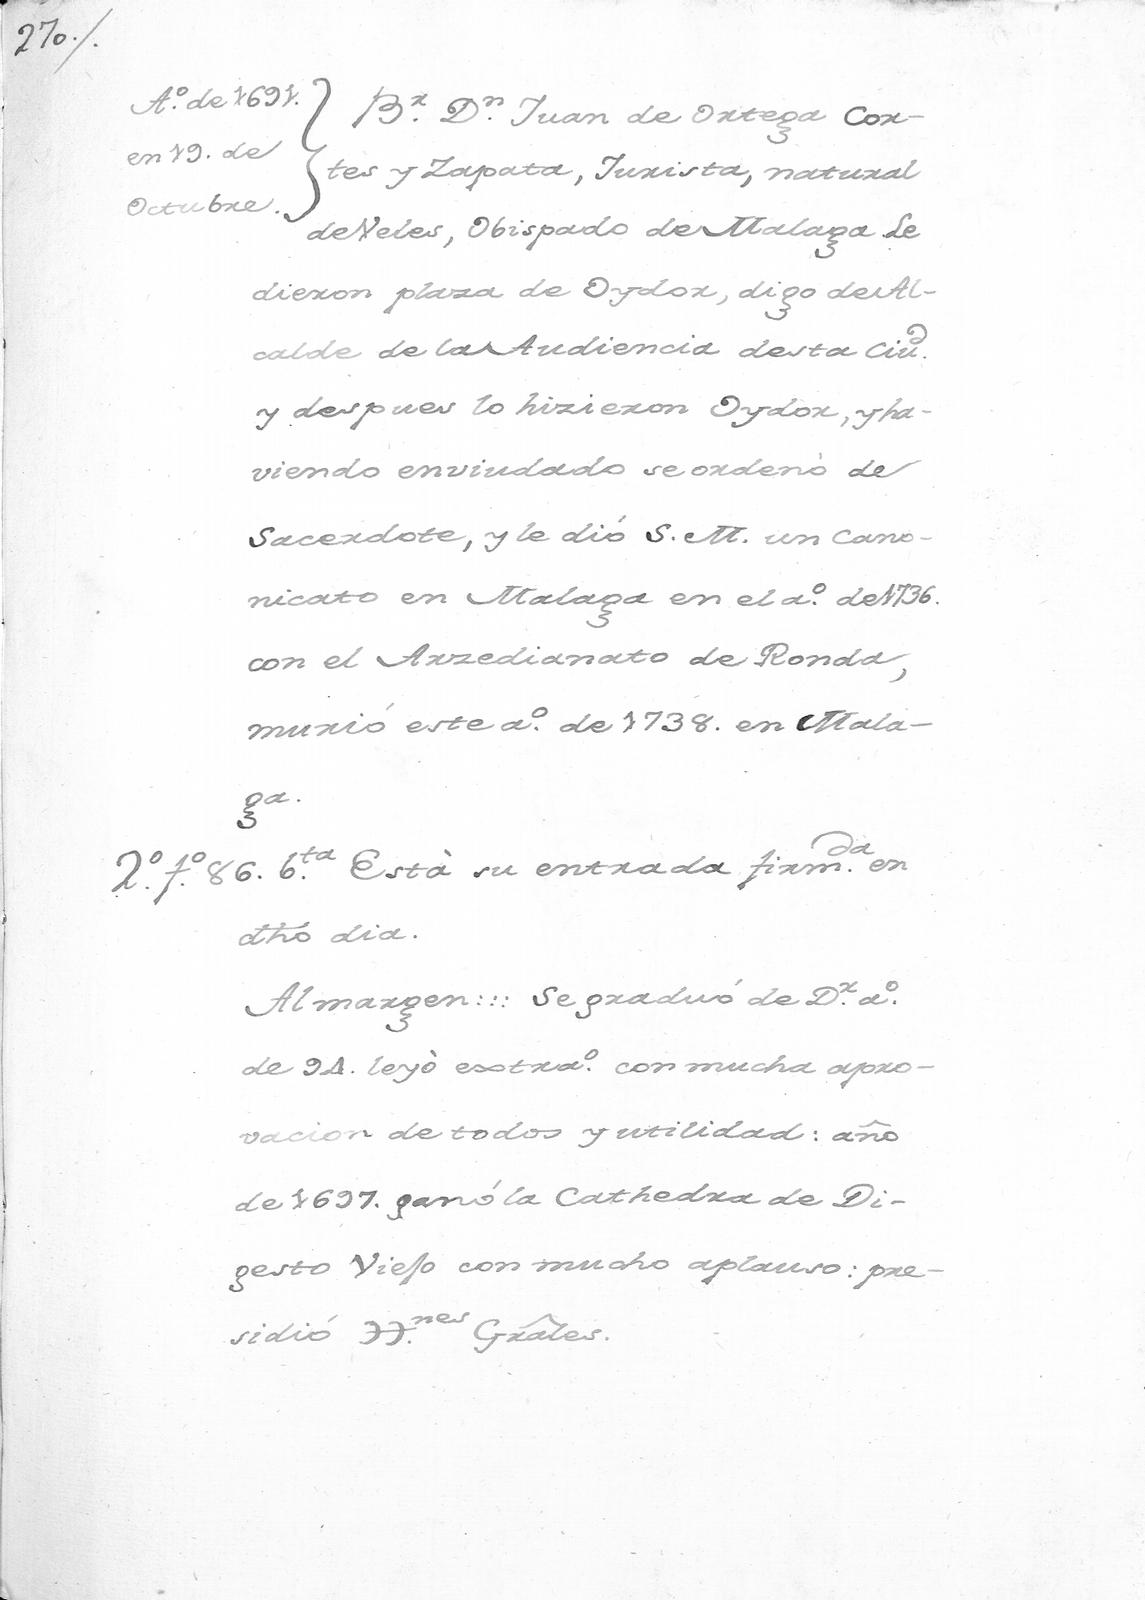 270./.
A.º de 1691.
en 19. de
Octubre.
B.r D.n Juan de Ortega Cor-
tes y Zapata, Jurista, natural
de Veles, Obispado de Malaga Le
dieron plaza de Oydor, digo de Al-
calde de la Audiencia desta Ciu.d
y despues lo hizieron Oydor, y ha-
viendo enviudado se ordenò de
Sacerdote, y le dió S. M. un Cano-
nicato en Malaga en el a.º de 1736.
con el Arzedianato de Ronda,
murió este a.º de 1738. en Mala-
ga.
2.º f.º 86. b.ta Està su entrada firm.da en
dho dia.
Al margen::: Se graduó de D.r a.º
de 94. leyò extra.º con mucha apro-
vacion de todos y utilidad: año
de 1697. ganó la Cathedra de Di-
gesto Viejo con mucho aplauso: pre-
sidió HH.nes Grâles.